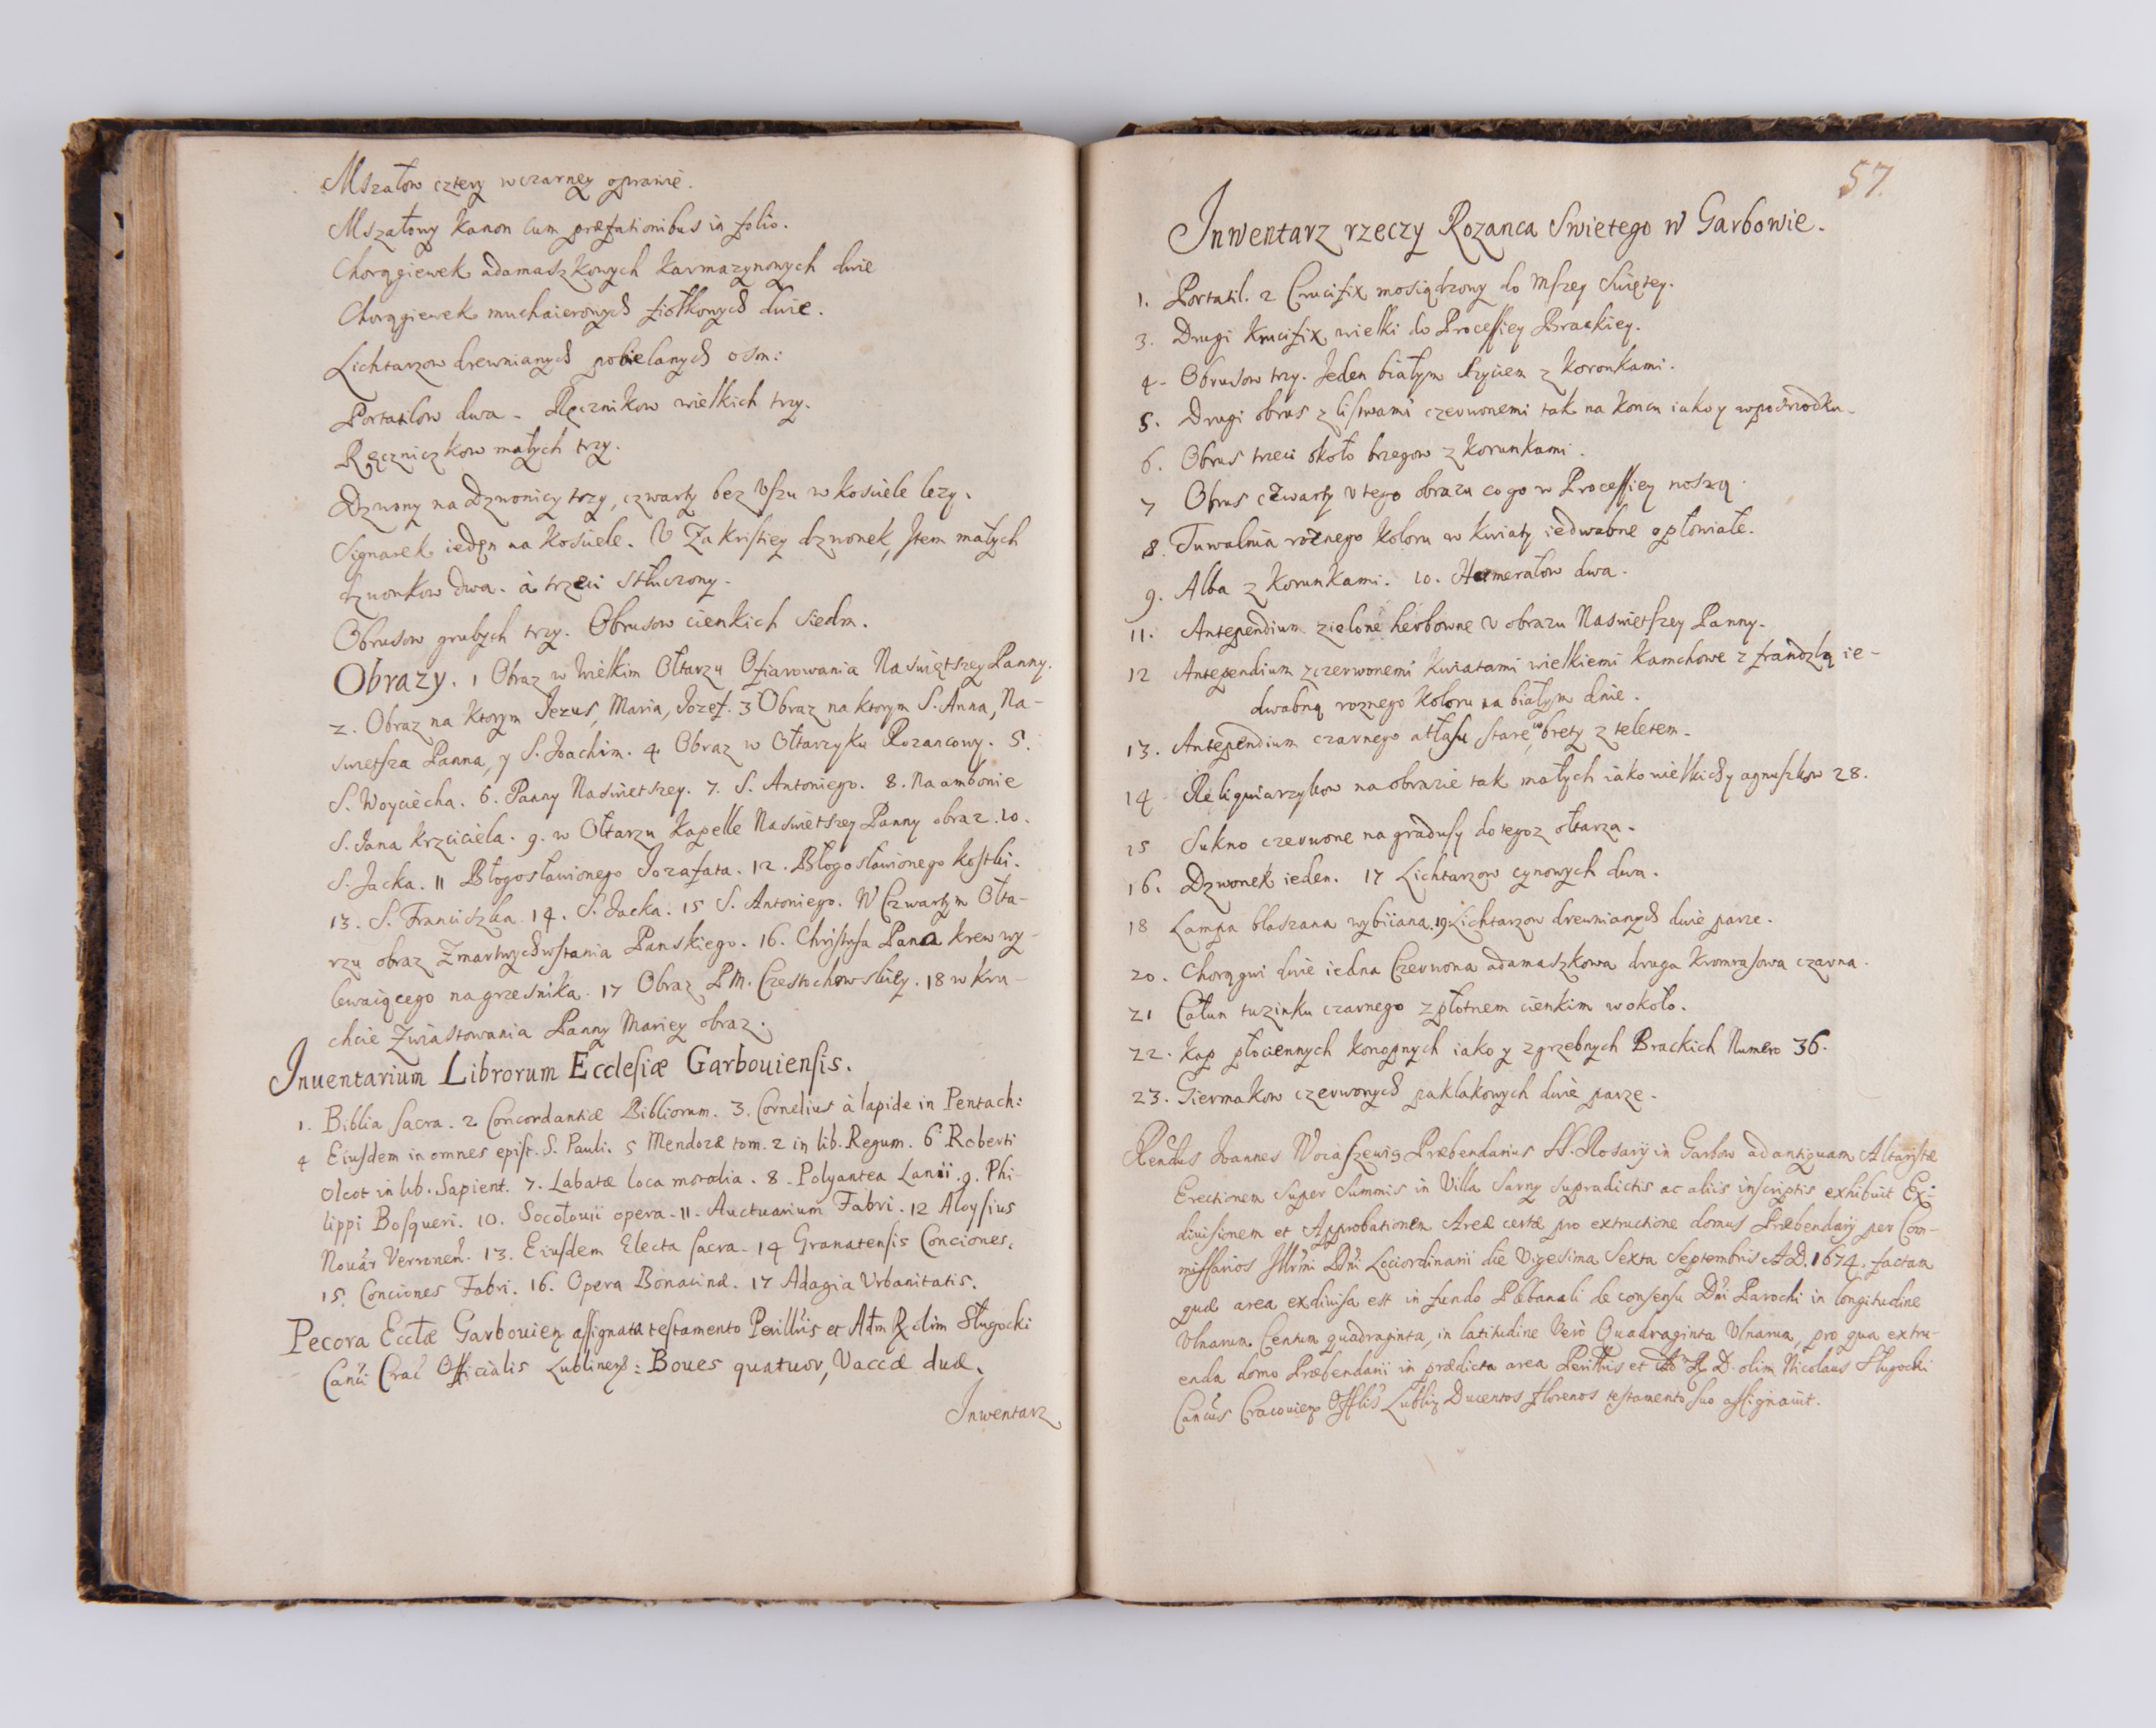 Mszałow cztery w czarney oprawie.
Mszałowy Kanon cum præfationibus in folio.
Chorągiewek adamaszkowych karmazynowych dwie
Chorągiewek muchaierowych fiołkowych dwie.
Lichtarzow drewnianych pobielanych osm:
Portatilow dwa - Ręcznikow wielkich trzy.
Ręczniczkow małych trzy.
Dzwony na Dzwonicy trzy, czwarty bez Vszu w kosciele lezy.
Signarek ieden na Kosciele. V Zakristiey dzwonek, Item małych
dzwonkow dwa. à trzeci stłuczony.
Obrusow grubych trzy. Obrusow cienkich siedm.
Obrazy. 1 Obraz w Wielkim Ołtarzu Ofiarowania Naswiętszey Panny.
2. Obraz na Ktorym Jezus, Maria, Jozef. 3 Obraz na ktorym S. Anna, Na-
swietsza Panna, y S. Joachim. 4 Obraz w Ołtarzyku Rozancowy. 5.
S. Woyciecha. 6. Panny Naswietszey. 7. S. Antoniego. 8. Na ambonie
S. Jana Krzciciela. 9. w Ołtarzu Kapelle Naswietszey Panny obraz. 10.
S. Jacka. 11 Błogosławionego Jozafata. 12. Błogosławionego Kostki.
13. S. Franciszka. 14. S. Jacka. 15 S. Antoniego. W Czwartym Ołta-
rzu obraz Zmartwychwstania Panskiego. 16. Christusa Pana krew wy-
lewaiącego na grzesnika. 17 Obraz P.M. Czestochowskiey. 18 w kru-
chcie Zwiastowania Panny Mariey obraz.
Inuentarium Librorum Ecclesiæ Garbouiensis.
1. Biblia sacra. 2 Concordantiæ Bibliorum. 3. Cornelius à lapide in Pentach:
4 Eiusdem in omnes epist. S. Pauli. 5 Mendozæ tom. 2 in lib. Regum. 6 Roberti
Olcot in lib. Sapient. 7. Labatæ loca moralia. 8. Polyantea Lanii. 9. Phi-
lippi Bosqueri. 10. Socołouii opera. 11. Auctuarium Fabri. 12 Aloysius
Nouar Verronen. 13. Eiusdem Electa sacra. 14 Granatensis Conciones.
15. Conciones Fabri. 16. Opera Bonacinæ. 17 Adagia Vrbanitatis.
Pecora Ecclæ Garbouien assignata testamento Perillris et Adm R olim Sługocki
Canci Crac Officialis Lublinens: Boues quatuor, Vaccæ duæ.
Inwentarz
57.
Inwentarz rzeczy Rozanca Swietego w Garbowie.
1. Portatil. 2 Crucifix mosiądzowy do Mszey Swiętey.
3. Drugi Krucifix wielki do Processiey Brackiey.
4. Obrusow trzy. Jeden białym szyciem z koronkami.
5. Drugi obrus z listwami czerwonemi tak na koncu iako y w posrzodku.
6. Obrus trzeci około brzegow z korunkami.
7 Obrus czwarty v tego obrazu co go w Processiey noszą.
8. Tuwalnia roznego koloru w kwiaty iedwabne opłowiałe.
9. Alba z korunkami. 10. Humerałow dwa.
11. Antependium zielone herbowne v obrazu Naswietszey Panny.
12 Antependium z czerwonemi kwiatami wielkiemi kamchowe z frandzlą ie-
dwabną roznego koloru na białym dnie.
13. Antependium czarnego atłasu stare w brety z teletem.
14 Reliquiarzykow na obrazie tak małych iako wielkich y agnuszkow 28.
15 Sukno czerwone na gradusy do tegoz ołtarza.
16. Dzwonek ieden. 17 Lichtarzow cynowych dwa.
18 Lampa blaszana wybiiana. 19 Lichtarzow drewnianych dwie parze.
20. Chorągwi dwie iedna Czerwona adamaszkowa druga Kromrasowa czarna.
21 Całun tuzinku czarnego z płotnem cienkim wokoło.
22. Kap płociennych konopnych iako y zgrzebnych Brackich Numero 36.
23. Giermakow czerwonych paklakowych dwie parze.
Rendus Joannes Præbendarius SS. Rosarij in Garbow ad antiquam Altaristæ
Erectionem super summis in Villa Sarny supradictis ac aliis inscriptis exhibuit Ex-
diuisionem et Approbationem Areæ certæ pro extructione domus Præbendarij per Com-
missarios Illrmi Dni Lociordinarii die Vigesima Sexta Septembris A.D. 1674. factam
quæ area exdiuisa est in fundo Plebanali de consensu Dni Parochi in longitudine
Vlnarum Centum quadraginta, in latitudine Verò Quadraginta Vlnarum, pro qua extru-
enda domo Præbendarii in prædicta area Perillris et R D. olim Nicolaus Sługocki
Cancus Cracouien Offlis Lublin Ducentos florenos testamento suo assignauit.